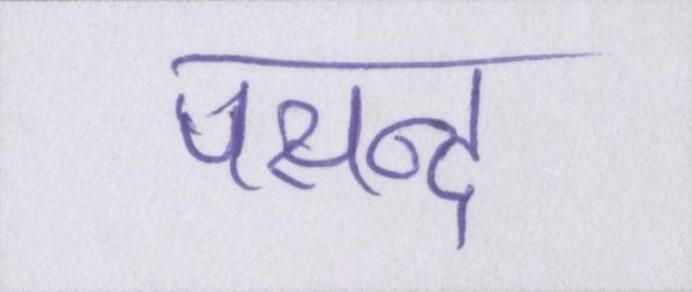 पसन्द